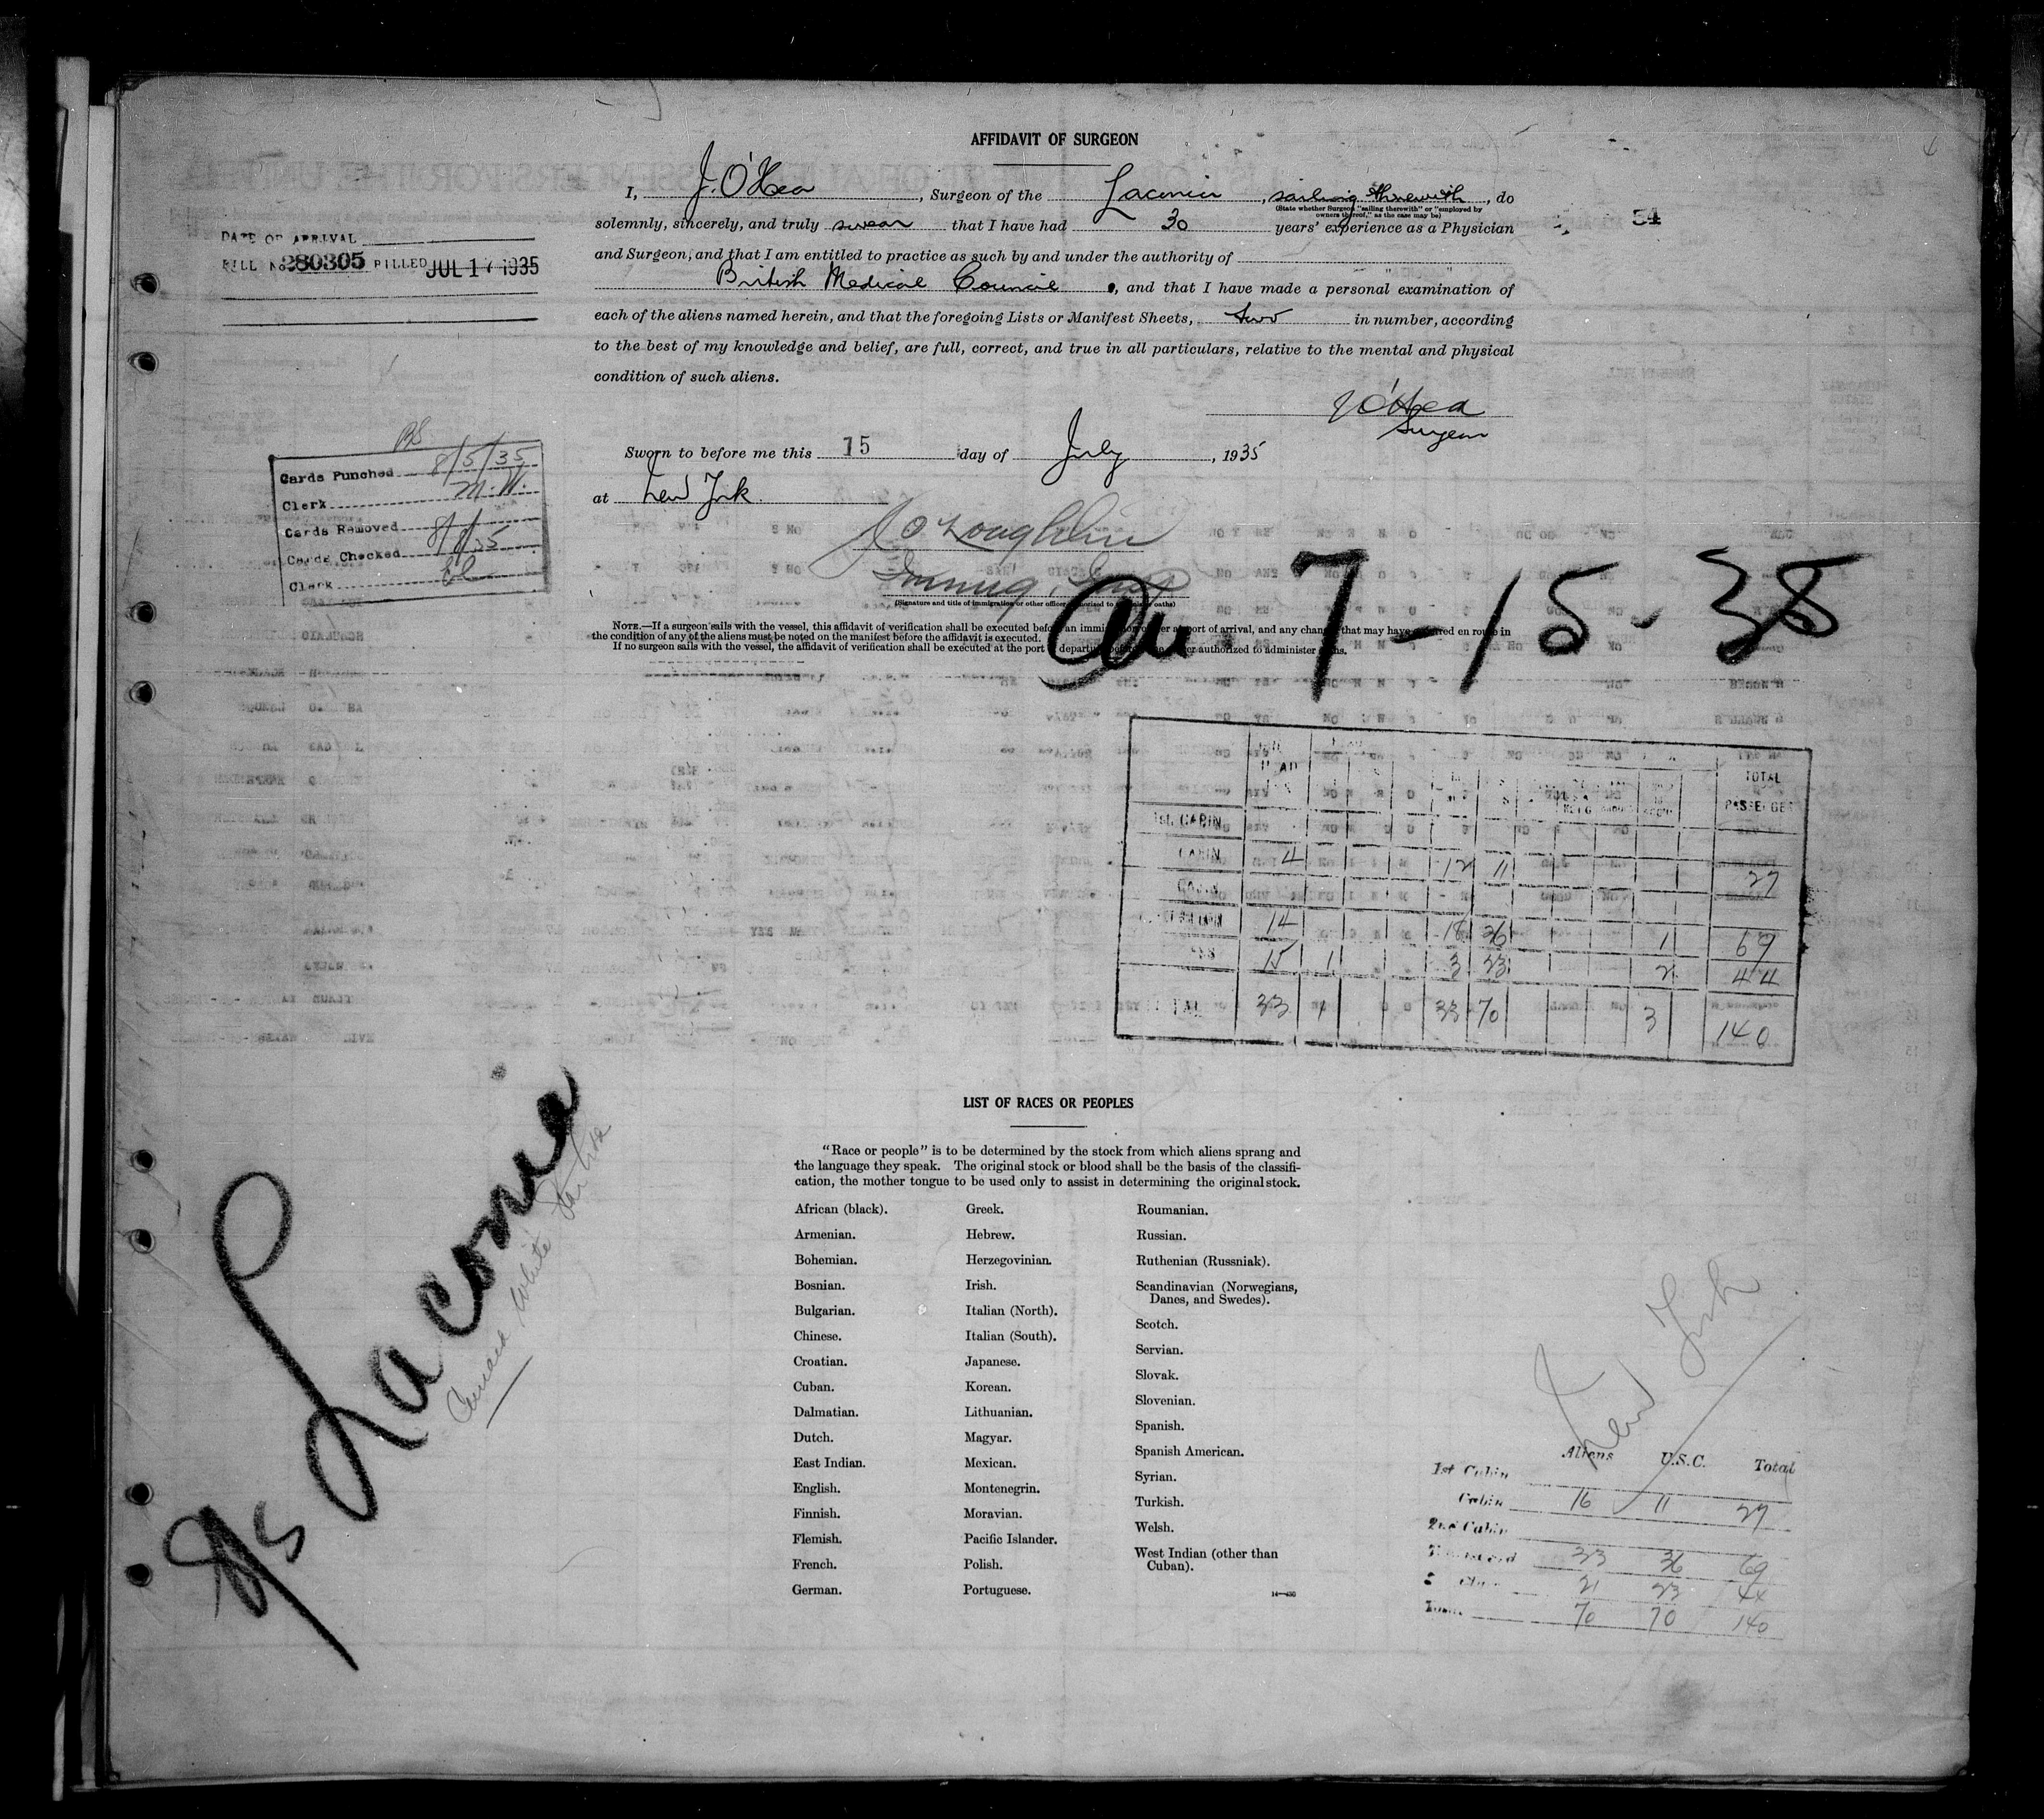 AFFIDAVIT OF SURGEON
I, J. O'Hea, Surgeon of the Laconia, sailing therewith, do
(State whether Surgeon "sailing therewith" or "employed by
owners thereof," as the case may be)
solemnly, sincerely, and truly swear that I have had 30 years' experience as a Physician
and Surgeon, and that I am entitled to practice as such by and under the authority of
British Medical Council, and that I have made a personal examination of
each of the aliens named herein, and that the foregoing Lists or Manifest Sheets, two in number, according
to the best of my knowledge and belief, are full, correct, and true in all particulars, relative to the mental and physical
condition of such aliens.
J O'Hea
Surgeon
Sworn to before me this 15 day of July, 1935
at New York.
J O'Loughlin
Immig. Insp
(Signature and title of immigration or other officer authorized to administer oaths)
NOTE.—If a surgeon sails with the vessel, this affidavit of verification shall be executed before an immigration officer at port of arrival, and any change that may have occurred en route in
the condition of any of the aliens must be noted on the manifest before the affidavit is executed.
If no surgeon sails with the vessel, the affidavit of verification shall be executed at the port of departure before an officer authorized to administer oaths.
34
DATE OF ARRIVAL
BILL No 280305 FILLED JUL 17 1935
BS
Cards Punched 8/5/35
Clerk M. W.
Cards Removed
Cards Checked 8/8/35
Clerk
7-15-35
HEAD TOTAL
PASSENGER
1st. CABIN
CABIN 4 12 11 27
CABIN
14 18 36 1 69
15 1 3 23 2 44
TAL 33 1 33 70 3 140
LIST OF RACES OR PEOPLES
"Race or people" is to be determined by the stock from which aliens sprang and
the language they speak. The original stock or blood shall be the basis of the classifi-
cation, the mother tongue to be used only to assist in determining the original stock.
African (black).
Armenian.
Bohemian.
Bosnian.
Bulgarian.
Chinese.
Croatian.
Cuban.
Dalmatian.
Dutch.
East Indian.
English.
Finnish.
Flemish.
French.
German.
Greek.
Hebrew.
Herzegovinian.
Irish.
Italian (North).
Italian (South).
Japanese.
Korean.
Lithuanian.
Magyar.
Mexican.
Montenegrin.
Moravian.
Pacific Islander.
Polish.
Portuguese.
Roumanian.
Russian.
Ruthenian (Russniak).
Scandinavian (Norwegians,
Danes, and Swedes).
Scotch.
Servian.
Slovak.
Slovenian.
Spanish.
Spanish American.
Syrian.
Turkish.
Welsh.
West Indian (other than
Cuban).
SS Laconia
Cunard White Star Line
New York
Aliens U.S.C. Total
1st Cabin
Cabin 16 11 27
2nd Cabin
33 36 69
21 23 44
70 70 140